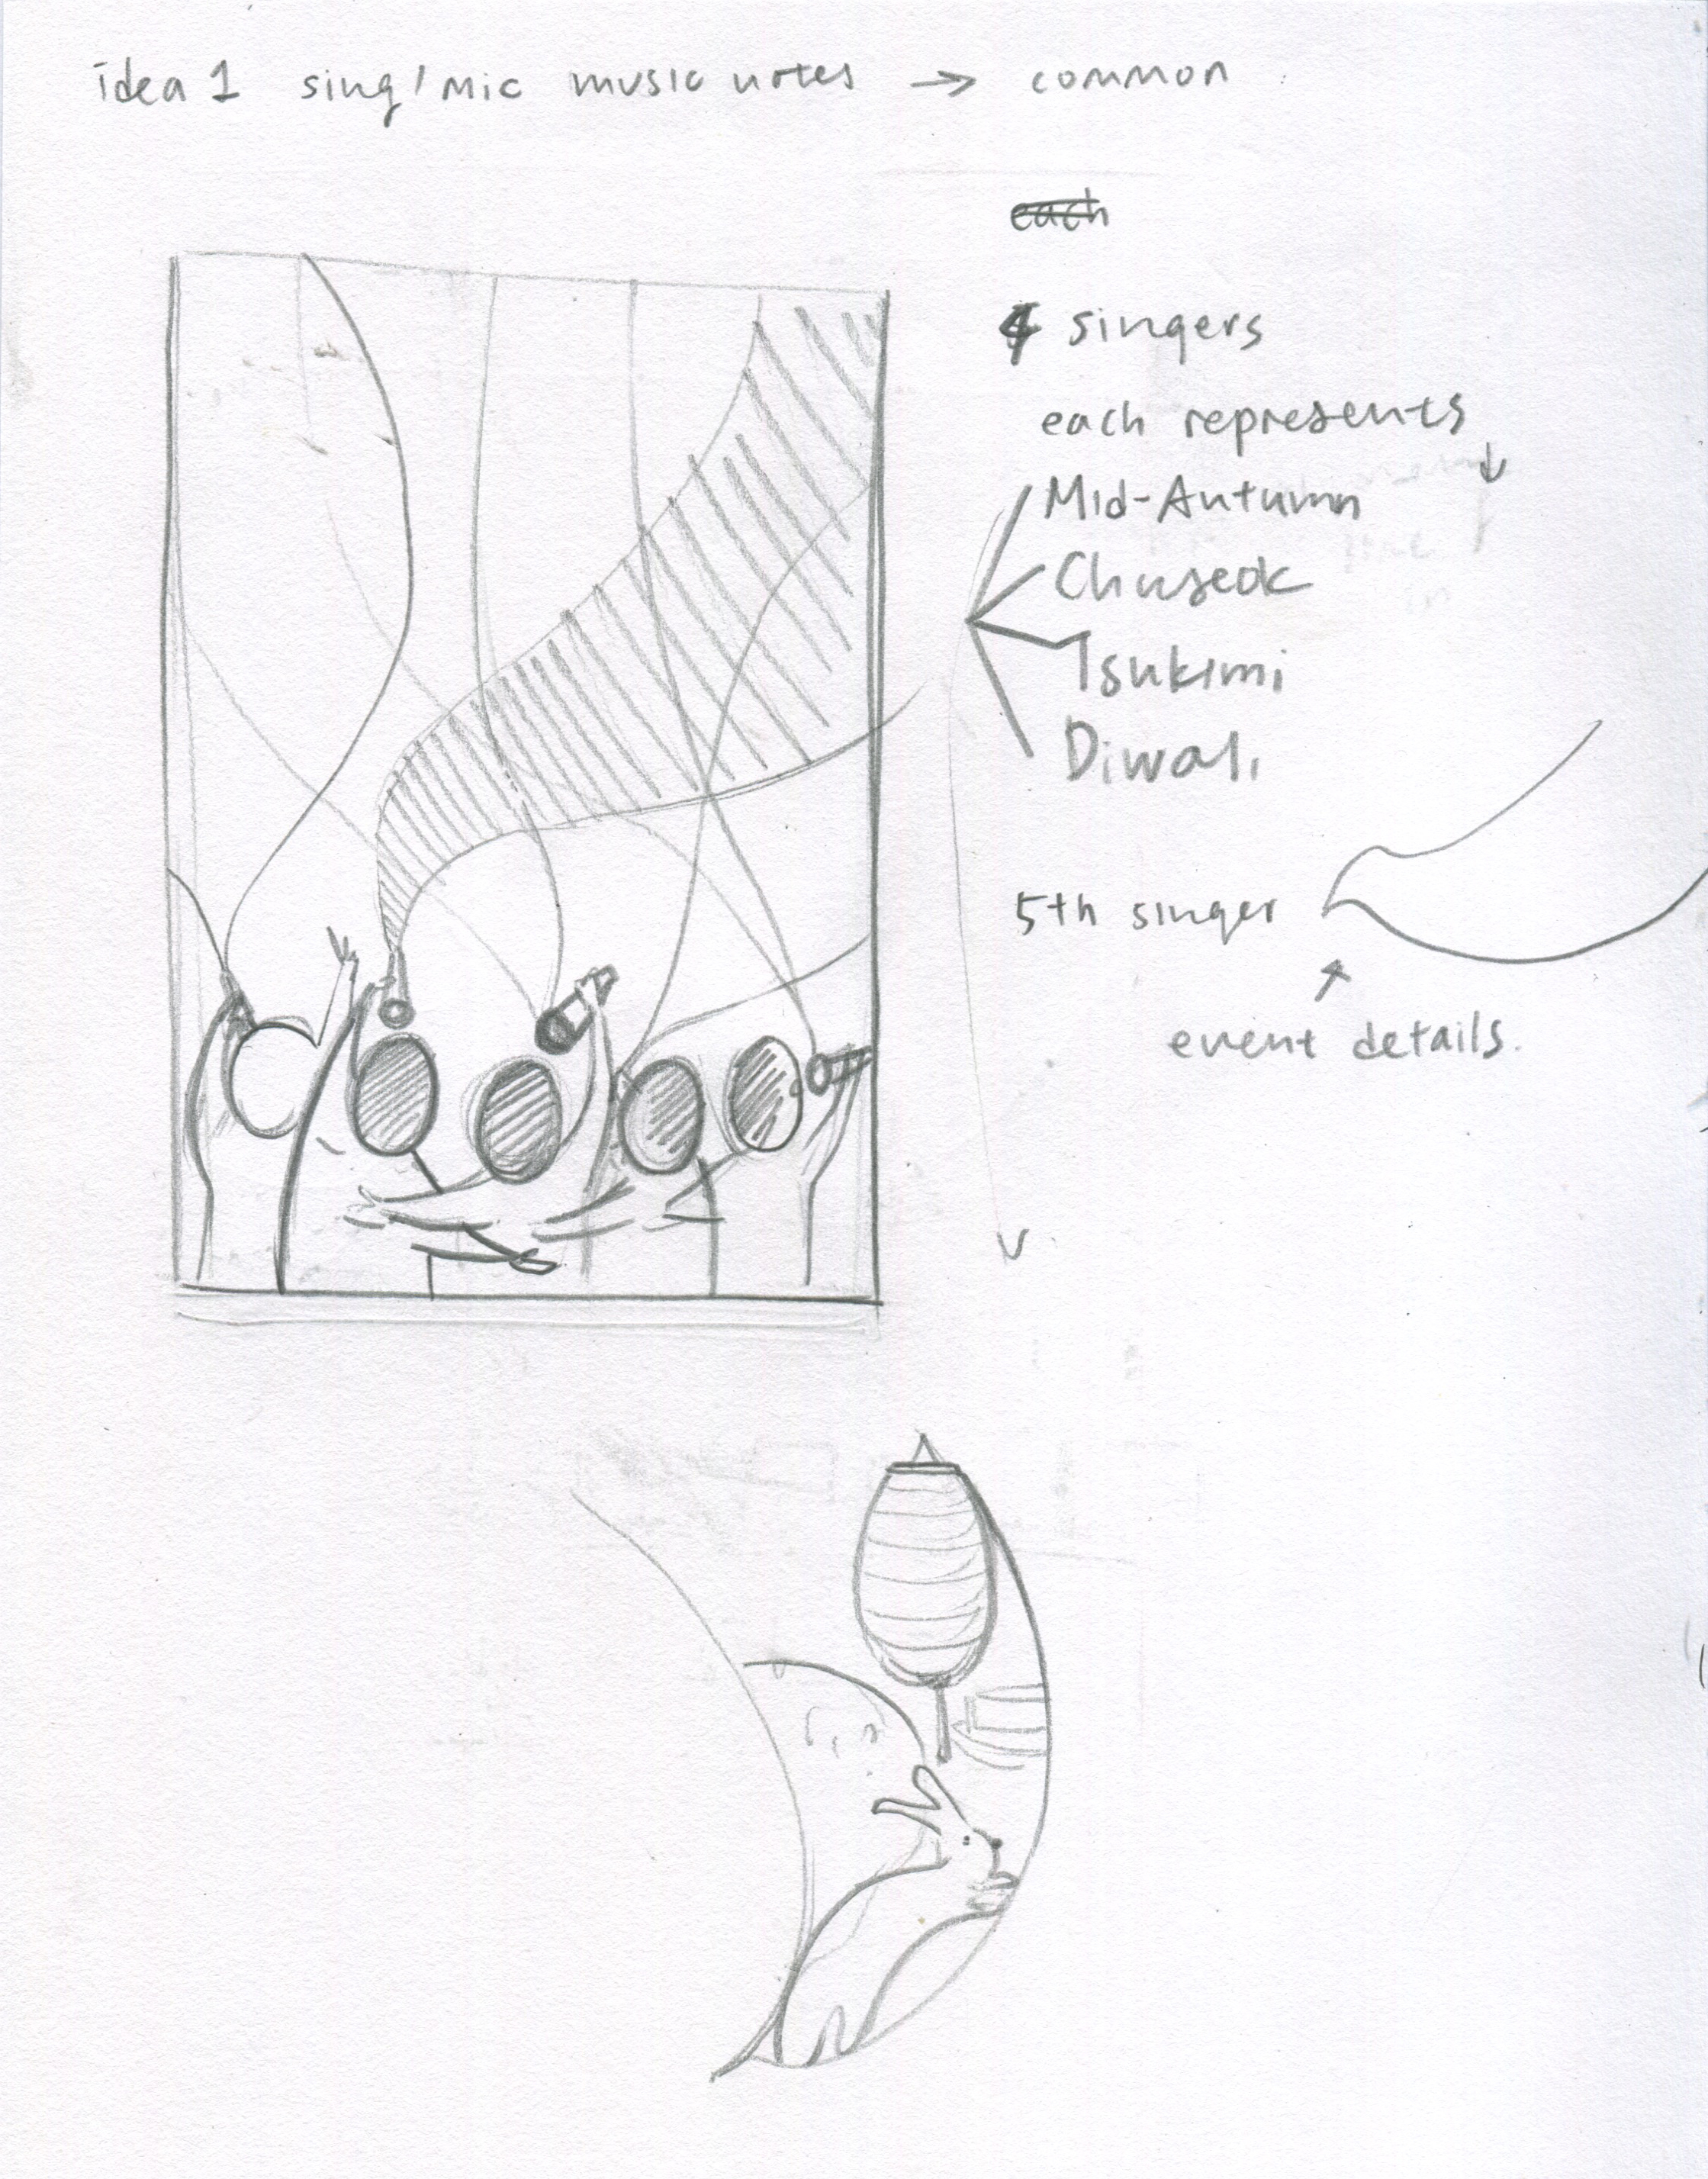 idea 1 sing/mic music notes → common
each
4 singers
each represents ↓
Mid-Autumn
Chuseok
Tsukimi
Diwali
5th singer
event details.